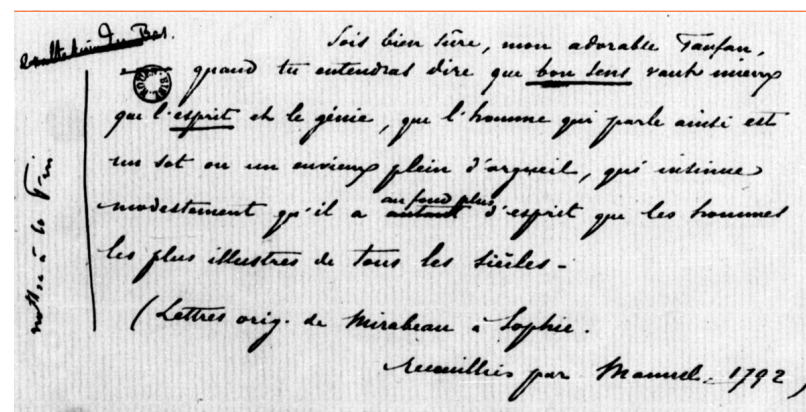 Du Bos.
Sois bien sûre, mon adorable Fanfan,
quand tu entendras dire que bon sens vaut mieux
que l'esprit et le génie, que l'homme qui parle ainsi est
un sot ou un envieux plein d'orgueil, qui insinue
au fond plus
modestement qu'il a autant d'esprit que les hommes
les plus illustres de tous les siècles -
(Lettres orig. de Mirabeau à Sophie.
recueillies par Manuel - 1792)
mettre à la fin